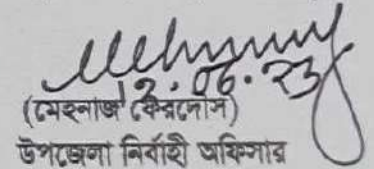 12.06.23
(মেহনাজ ফেরদৌস)
উপজেলা নির্বাহী অফিসার